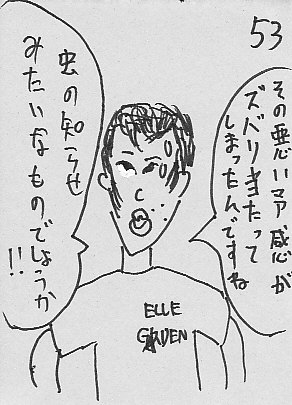 53
その悪いマア感が
ズバリ当たって
しまったんですね
虫の知らせ
みたいなものでしょうか
!!
ELLE
GARDEN